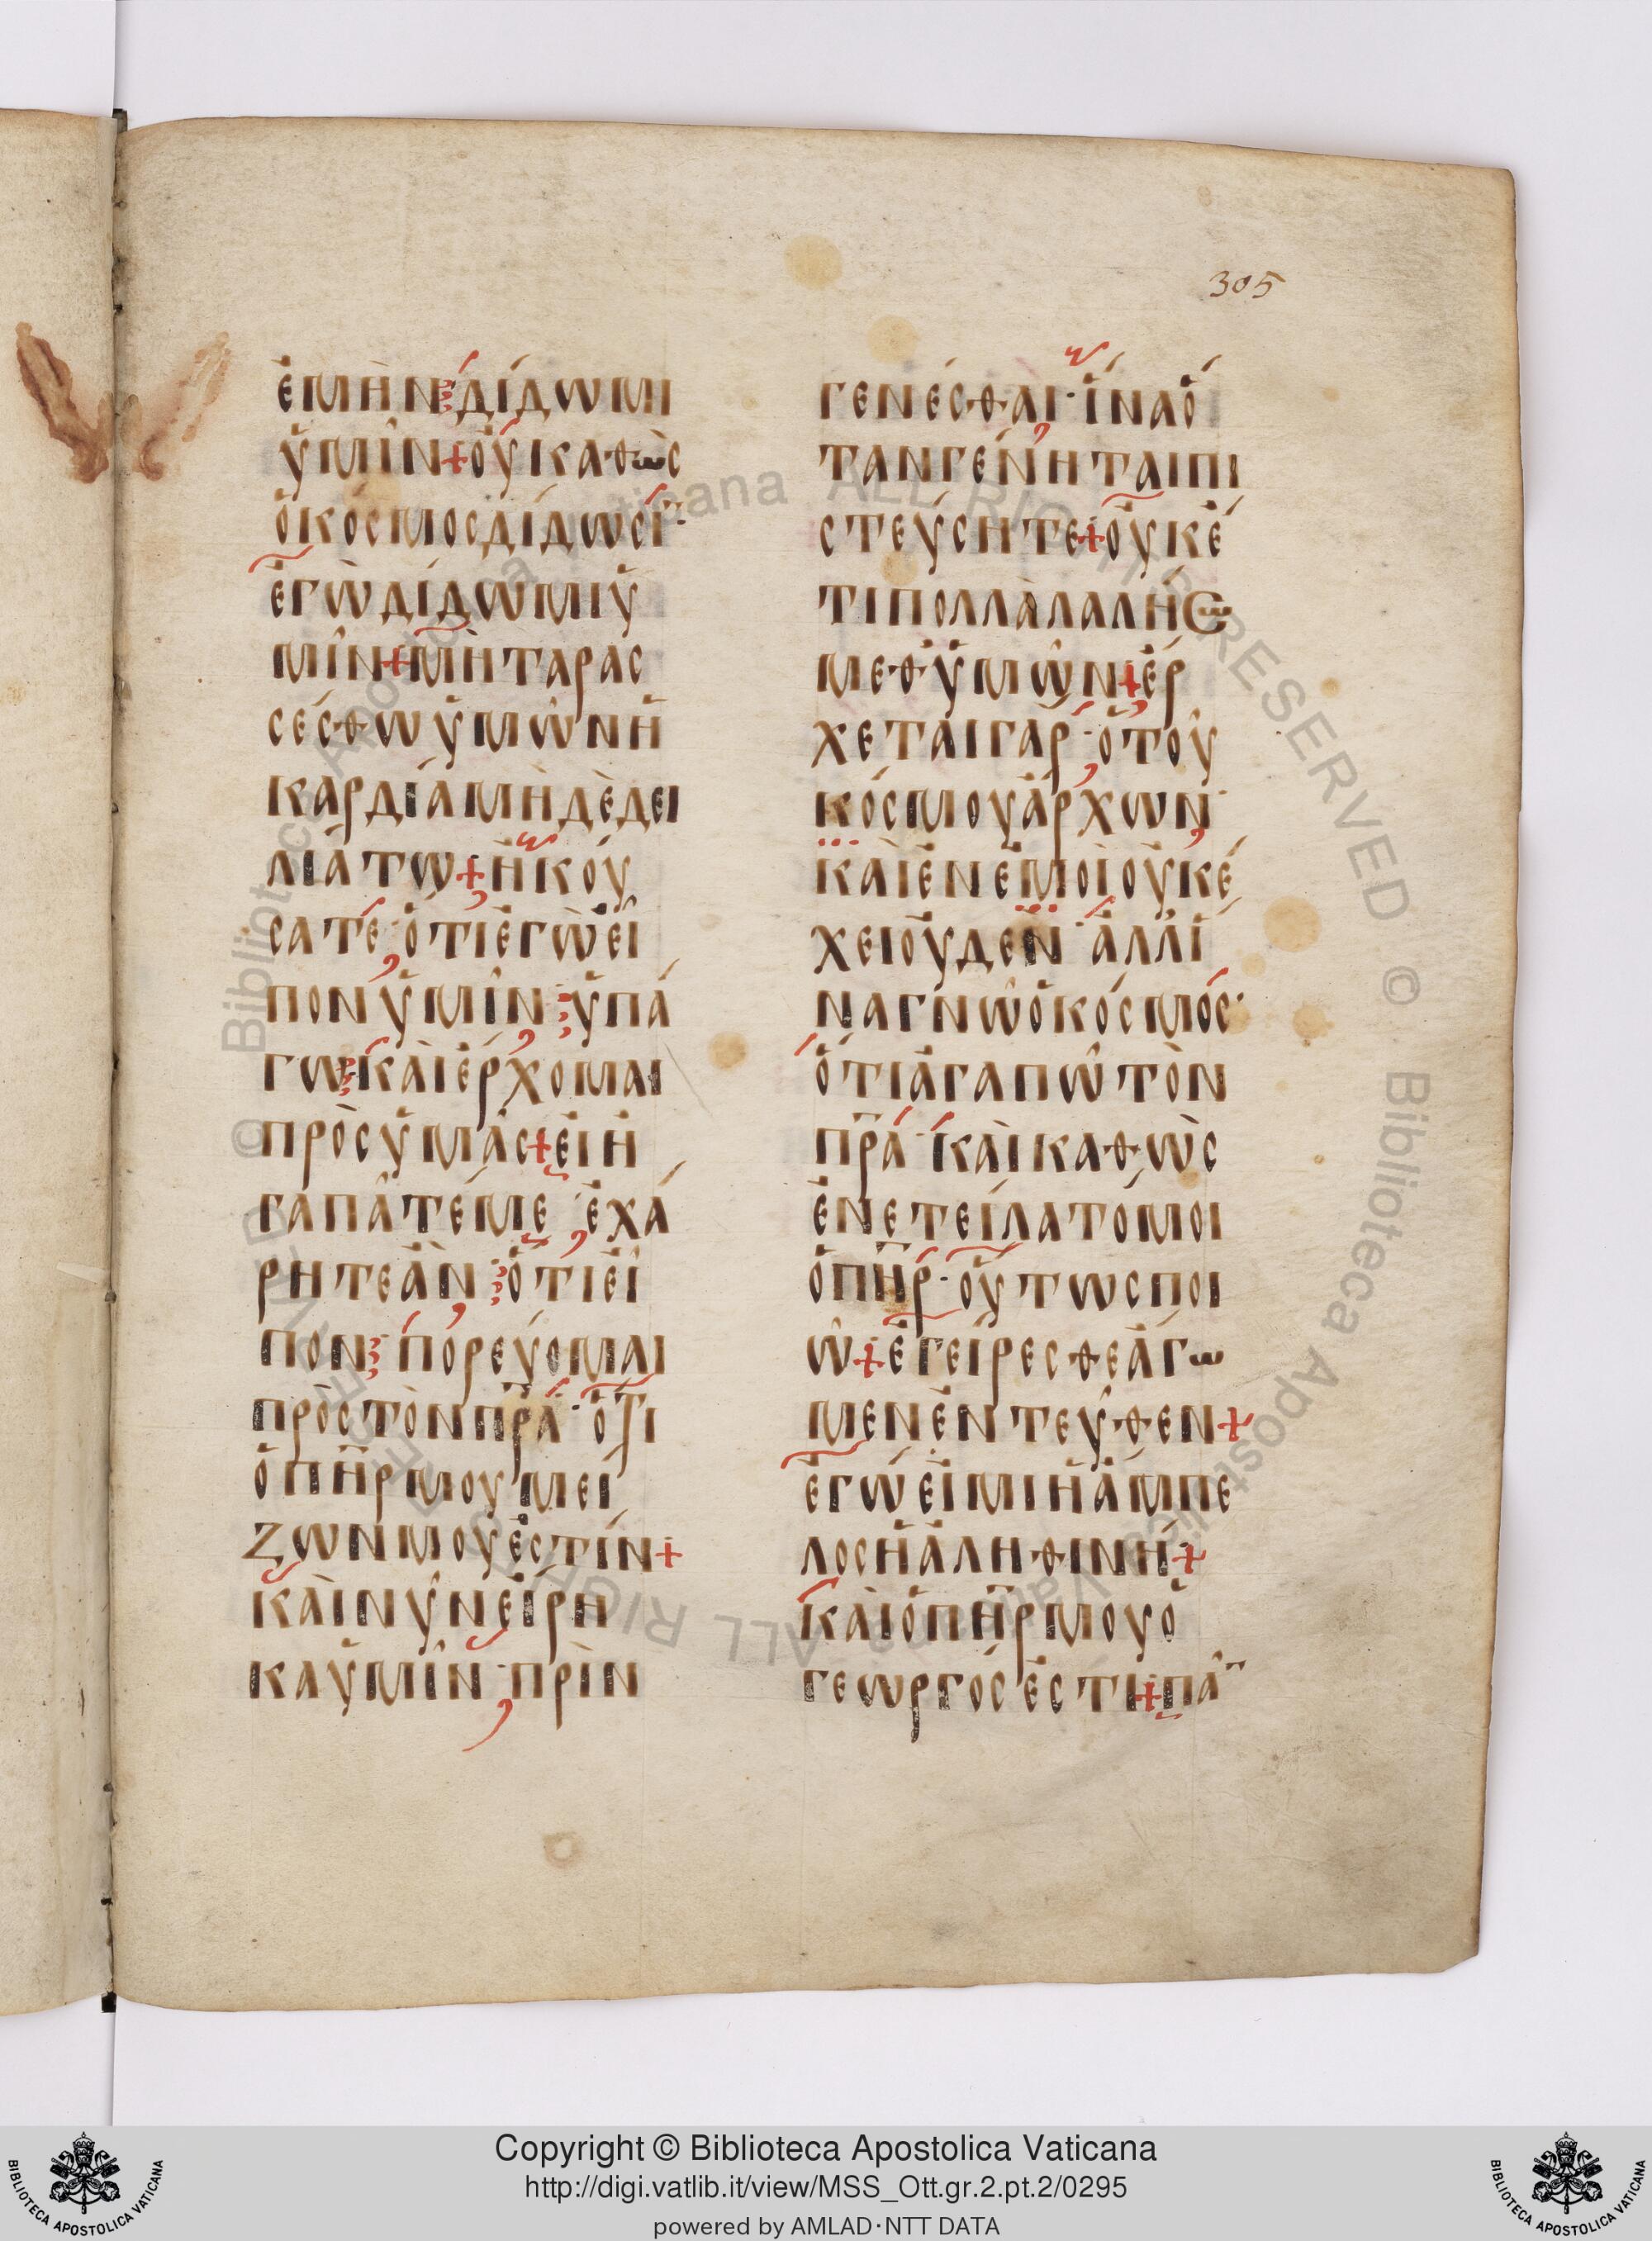 305
ἐμὴν δίδωμι
ὑμῖν + οὐ καθὼς
ὁ κόσμος δίδωσι·
ἐγὼ δίδωμι ὑ
μῖν + μὴ ταρας
σέσθω ὑμῶν ἡ
καρδία μὴ δὲ δει
λιάτω + ἠκού
σατε ὅτι ἐγὼ εἶ
πον ὑμῖν ὑπά
γω καὶ ἔρχομαι
πρὸς ὑμᾶς + εἰ ἠ
γαπᾶτέ με, ἐχά
ρητε ἂν ὅτι εἶ
πον· πορεύομαι
πρὸς τὸν πρα· ὅτι
ὁ πηρ μου μεί
ζων μου ἐστίν +
καὶ νῦν εἴρη
κα ὑμῖν· πρὶν
γενέσθαι· ἵνα ὅ
ταν γένηται πι
στεύσητε + οὐκ έ
τι πολλὰ λαλήσω
μεθ ὑμῶν + ἔρ
χεται γάρ· ὁ τοῦ
κόσμου ἄρχων·
καὶ ἐν ἐμοὶ οὐκ έ
χει οὐδέν· ἀλλ ἵ
να γνῶ ὁ κόσμος·
ὅτι ἀγαπῶ τὸν
πρα· καὶ καθὼς
ἐνετείλατό μοι
ὁ πηρ· οὕτως ποι
ῶ + ἐγείρεσθε ἄγω
μεν ἐντεῦθεν +
ἐγώ εἰμι ἡ ἄμπε
λος ἡ ἀληθινή +
καὶ ὁ πηρ μου ὁ
γεωργός ἐστι + πᾶ
Copyright © Biblioteca Apostolica Vaticana
http://digi.vatlib.it/view/MSS_Ott.gr.2.pt.2/0295
powered by AMLAD·NTT DATA
BIBLIOTECA APOSTOLICA VATICANA
BIBLIOTECA APOSTOLICA VATICANA
© Biblioteca Apostolica Vaticana ALL RIGHTS RESERVED
© Biblioteca Apostolica Vaticana ALL RIGHTS RESERVED